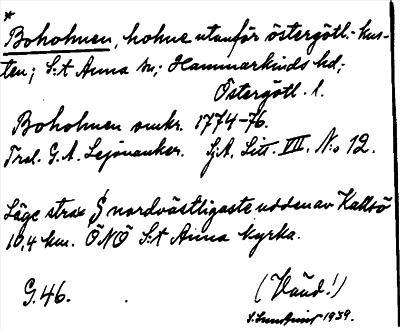 *
Boholmen, holme utanför östergötl.-kus-
ten; S:t Anna sn; Hammarkinds hd;
Östergötl. l.
Boholmen omkr. 1774-76.
Trol. G. A. Lejonanker. Sj.A. Litt. VII. N:o 12.
Läge strax § nordvästligaste udden av Kallsö
10,4 km. ÖNÖ S:t Anna kyrka.
G. 46. (Vänd!)
1939.